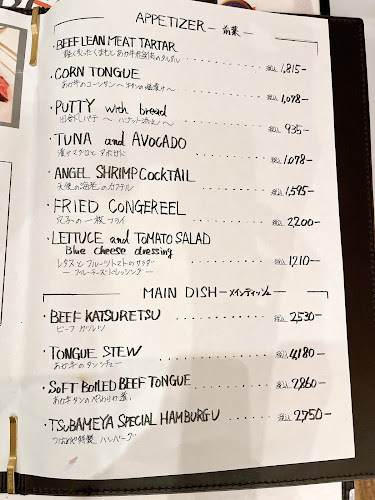 APPETIZER — 前菜
・BEEF LEAN MEAT TARTAR 税込 1,815—
・CORN TONGUE 税込 1,078—
・PUTTY with bread 税込 935—
・TUNA and AVOCADO 税込 1,078—
・ANGEL SHRIMP COCKTAIL 税込 1,595—
天使の海老のカクテル
・FRIED CONGEREEL 税込 2,200—
穴子の一枚フライ
・LETTUCE and TOMATO SALAD
Blue cheese dressing 税込 1,210—
レタスとフルーツトマトのサラダ
— ブルーチーズドレッシング —
MAIN DISH — メインディッシュ
・BEEF KATSURETSU 税込 2,530—
ビーフ カツレツ
・TONGUE STEW 税込 4,180—
あか牛のタンシチュー
・SOFT BOILED BEEF TONGUE 税込 2,860—
あか牛タンのやわらか煮
・TSUBAMEYA SPECIAL HAMBURGU 税込 2,750—
つばめや特製 ハンバーグ